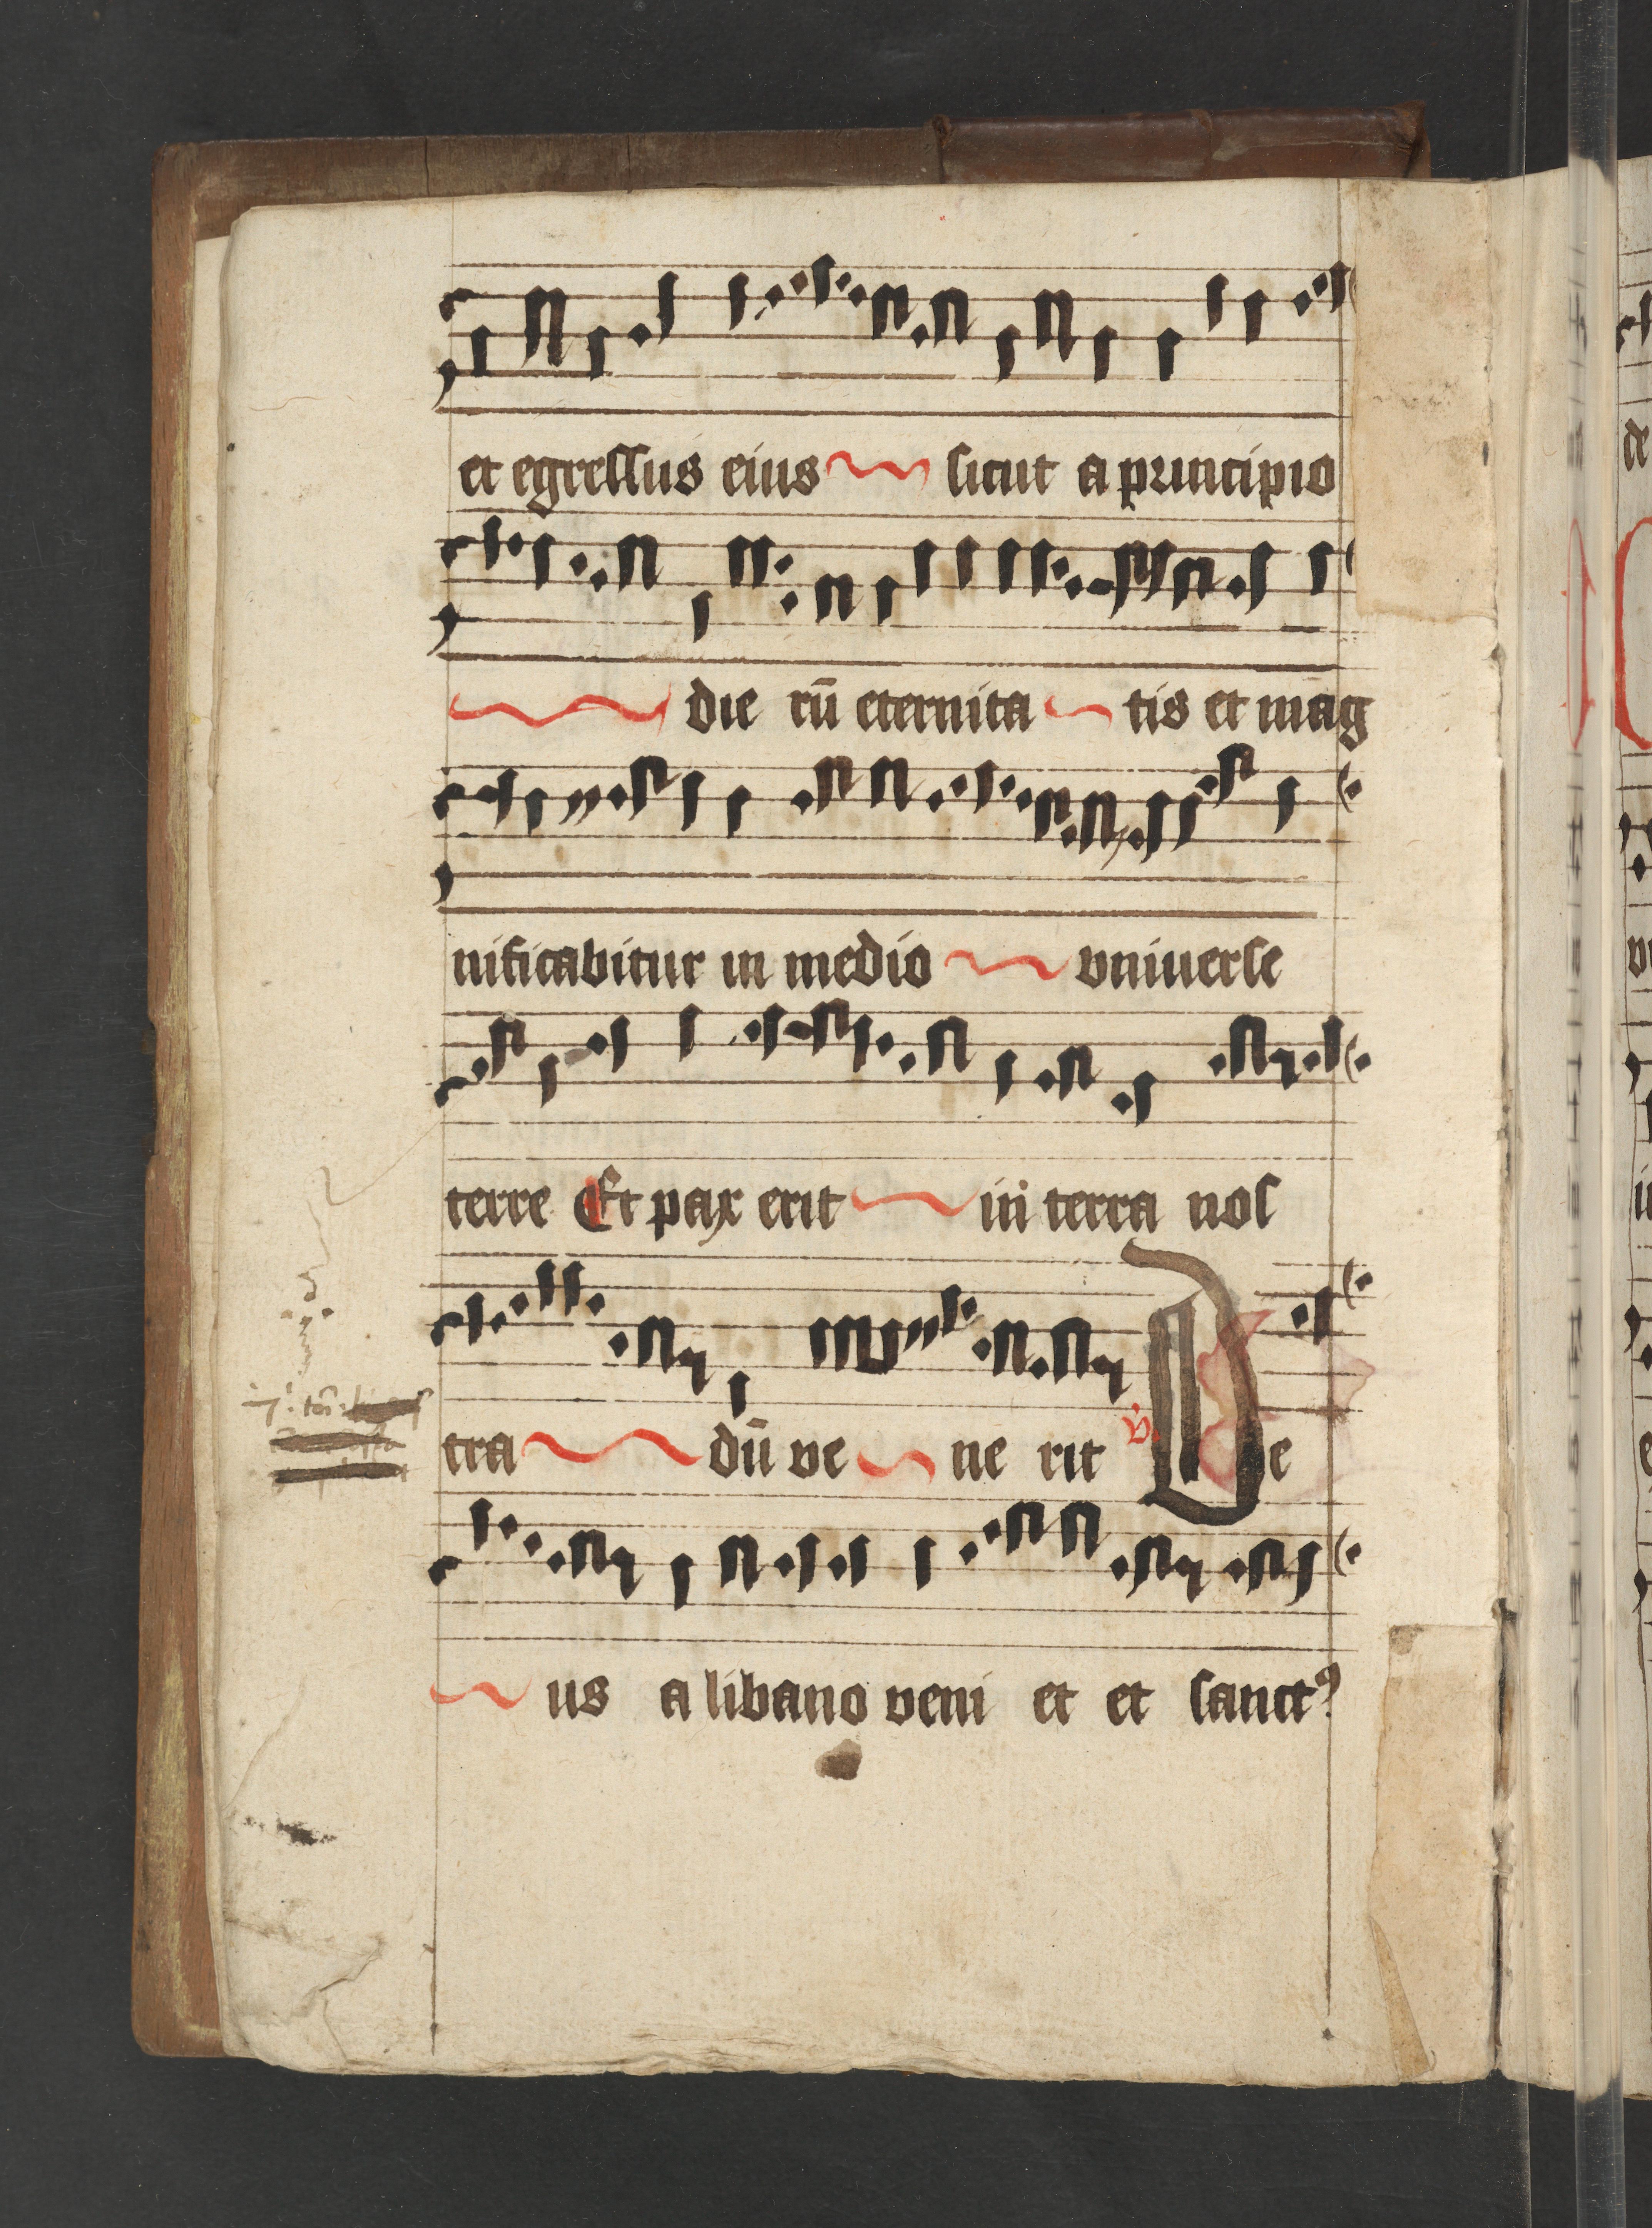 et egressus eius sicut a principio
die rū eternita tis et mag
nificabitur in medio vniuerse
terre Et pax erit in terra nos
tra dū ve ne rit v. De
us a libano veni et et sanct⁹